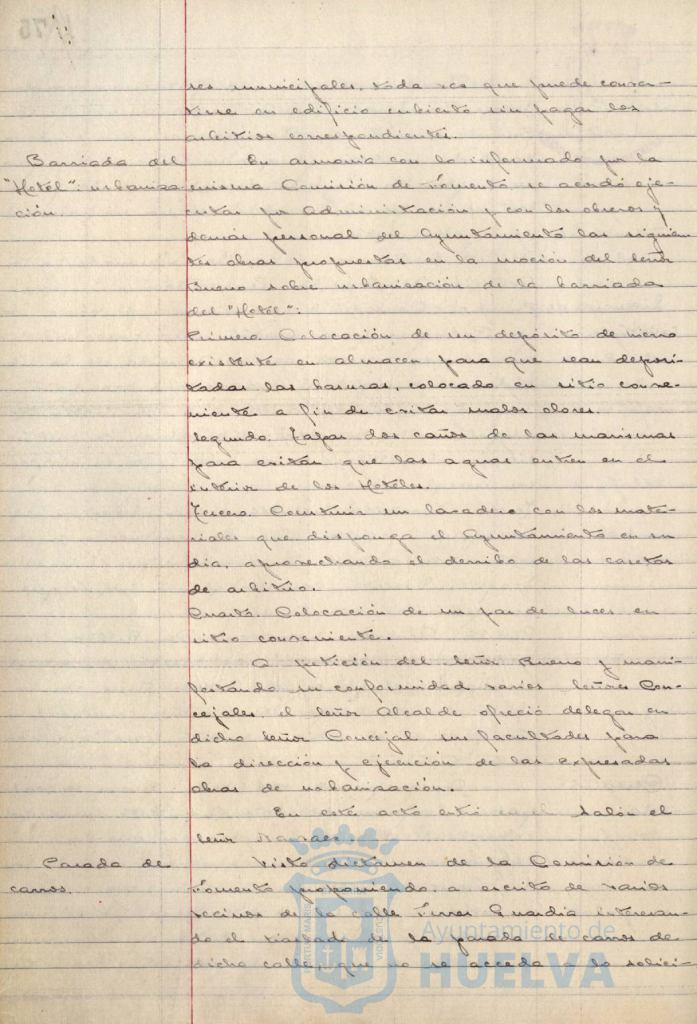 res municipales, toda vez que puede conver-
tirse en edificio cubierto sin pagar los
arbitrios correspondientes.
Barriada del
"Hotel": urbaniza
ción.
En armonía con lo informado por la
misma Comisión de Fomento se acordó eje-
cutar por Administración y con los obreros y
demás personal del Ayuntamiento las siguien
tes obras propuestas en la moción del Señor
Bueno sobre urbanización de la barriada
del "Hotel":
Primero. Colocación de un depósito de hierro
existente en almacen para que sean deposi-
tadas las basuras, colocado en sitio conve-
niente a fin de evitar malos olores.
Segundo. Tapar dos caños de las marismas
para evitar que las aguas entren en el
interior de los Hoteles.
Tercero. Construir un lavadero con los mate-
riales que disponga el Ayuntamiento en su
dia, aprovechando el derribo de las casetas
de arbitrio.
Cuarto. Colocación de un par de luces en
sitio conveniente.
A petición del Señor Bueno y mani-
festando su conformidad varios Señores Con-
cejales, el Señor Alcalde ofreció delegar en
dicho Señor Concejal sus facultades para
la dirección y ejecución de las expresadas
obras de urbanización.
En este acto entró en el Salón el
Señor
Parada de
carros.
Visto dictamen de la Comisión de
Fomento proponiendo, a escrito de varios
vecinos de la calle Ferrer Guardia interesan-
do el traslado de la parada de carros de
dicha calle, que no se acceda a lo solici-
Ayuntamiento de
HUELVA